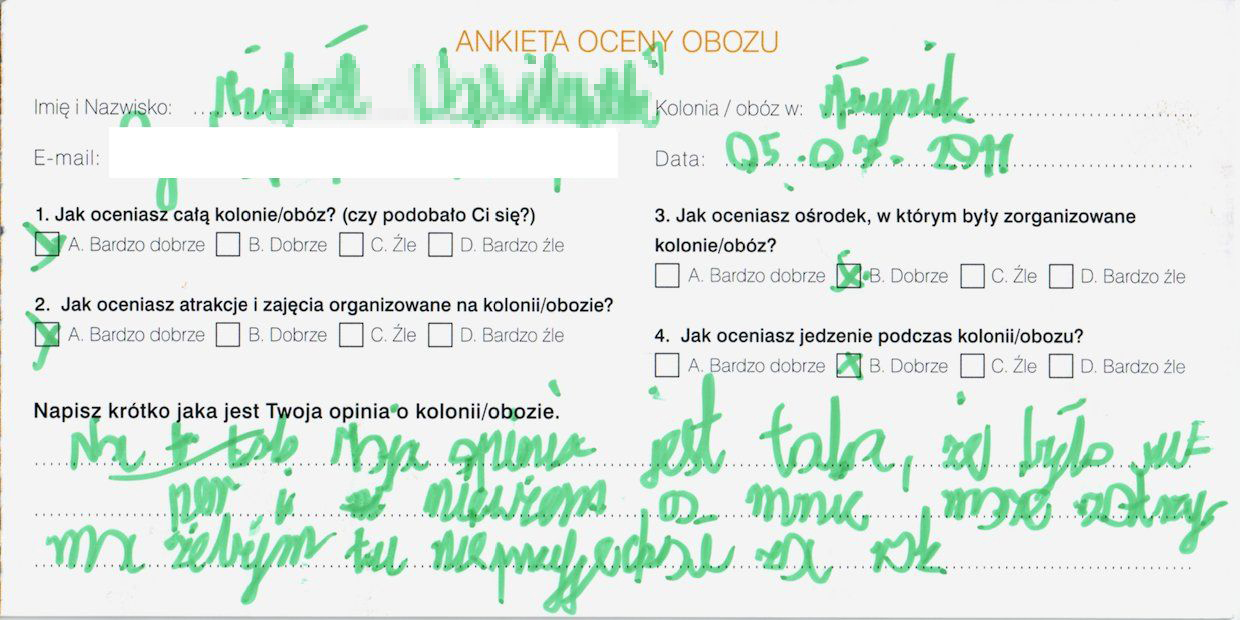 ANKIETA OCENY OBOZU
Imię i Nazwisko:
Kolonia / obóz w:
E-mail:
Data: 05.07.2011
1. Jak oceniasz całą kolonie/obóz? (czy podobało Ci się?)
A. Bardzo dobrze B. Dobrze C. Źle D. Bardzo źle
2. Jak oceniasz atrakcje i zajęcia organizowane na kolonii/obozie?
A. Bardzo dobrze B. Dobrze C. Źle D. Bardzo źle
3. Jak oceniasz ośrodek, w którym były zorganizowane
kolonie/obóz?
A. Bardzo dobrze B. Dobrze C. Źle D. Bardzo źle
4. Jak oceniasz jedzenie podczas kolonii/obozu?
A. Bardzo dobrze B. Dobrze C. Źle D. Bardzo źle
Napisz krótko jaka jest Twoja opinia o kolonii/obozie.
Moja opinia jest taka, że było su
per i mnie może zatrzy
ma żebym tu nie przyjechał za rok